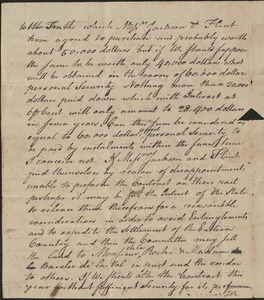 to the Tracts which Mess.rs Jackson & Flint
have agreed to purchase and probably worth
about 50,000 dollars but if We should suppose
the same to be worth only 40,000 dollars what
will be obtained in the room of 60,000 dollars
personal Security. Nothing more than 20,000
dollars paid down which with Interest at
6 pCent will only amount to 28,400 dollars
in seven years. Can this sum be considered as
equal to 60,000 dollars personal Security to
be paid by instalments within the same time
I conceive not. If Mess.rs Jackson and Flint
find themselves by reason of disappointment,
unable to perform the Contract on their part
perhaps it may be for the Interest of the State
to release them therefrom for a reasonable
consideration in order to avoid Entanglements
and to expedite the Settlement of the Eastern
Country and then the Committee may sell
the Land to Monsieur de la Roche &
in trust and the residue
to others. If We should alter the Contract this
year without sufficient Security for its performance